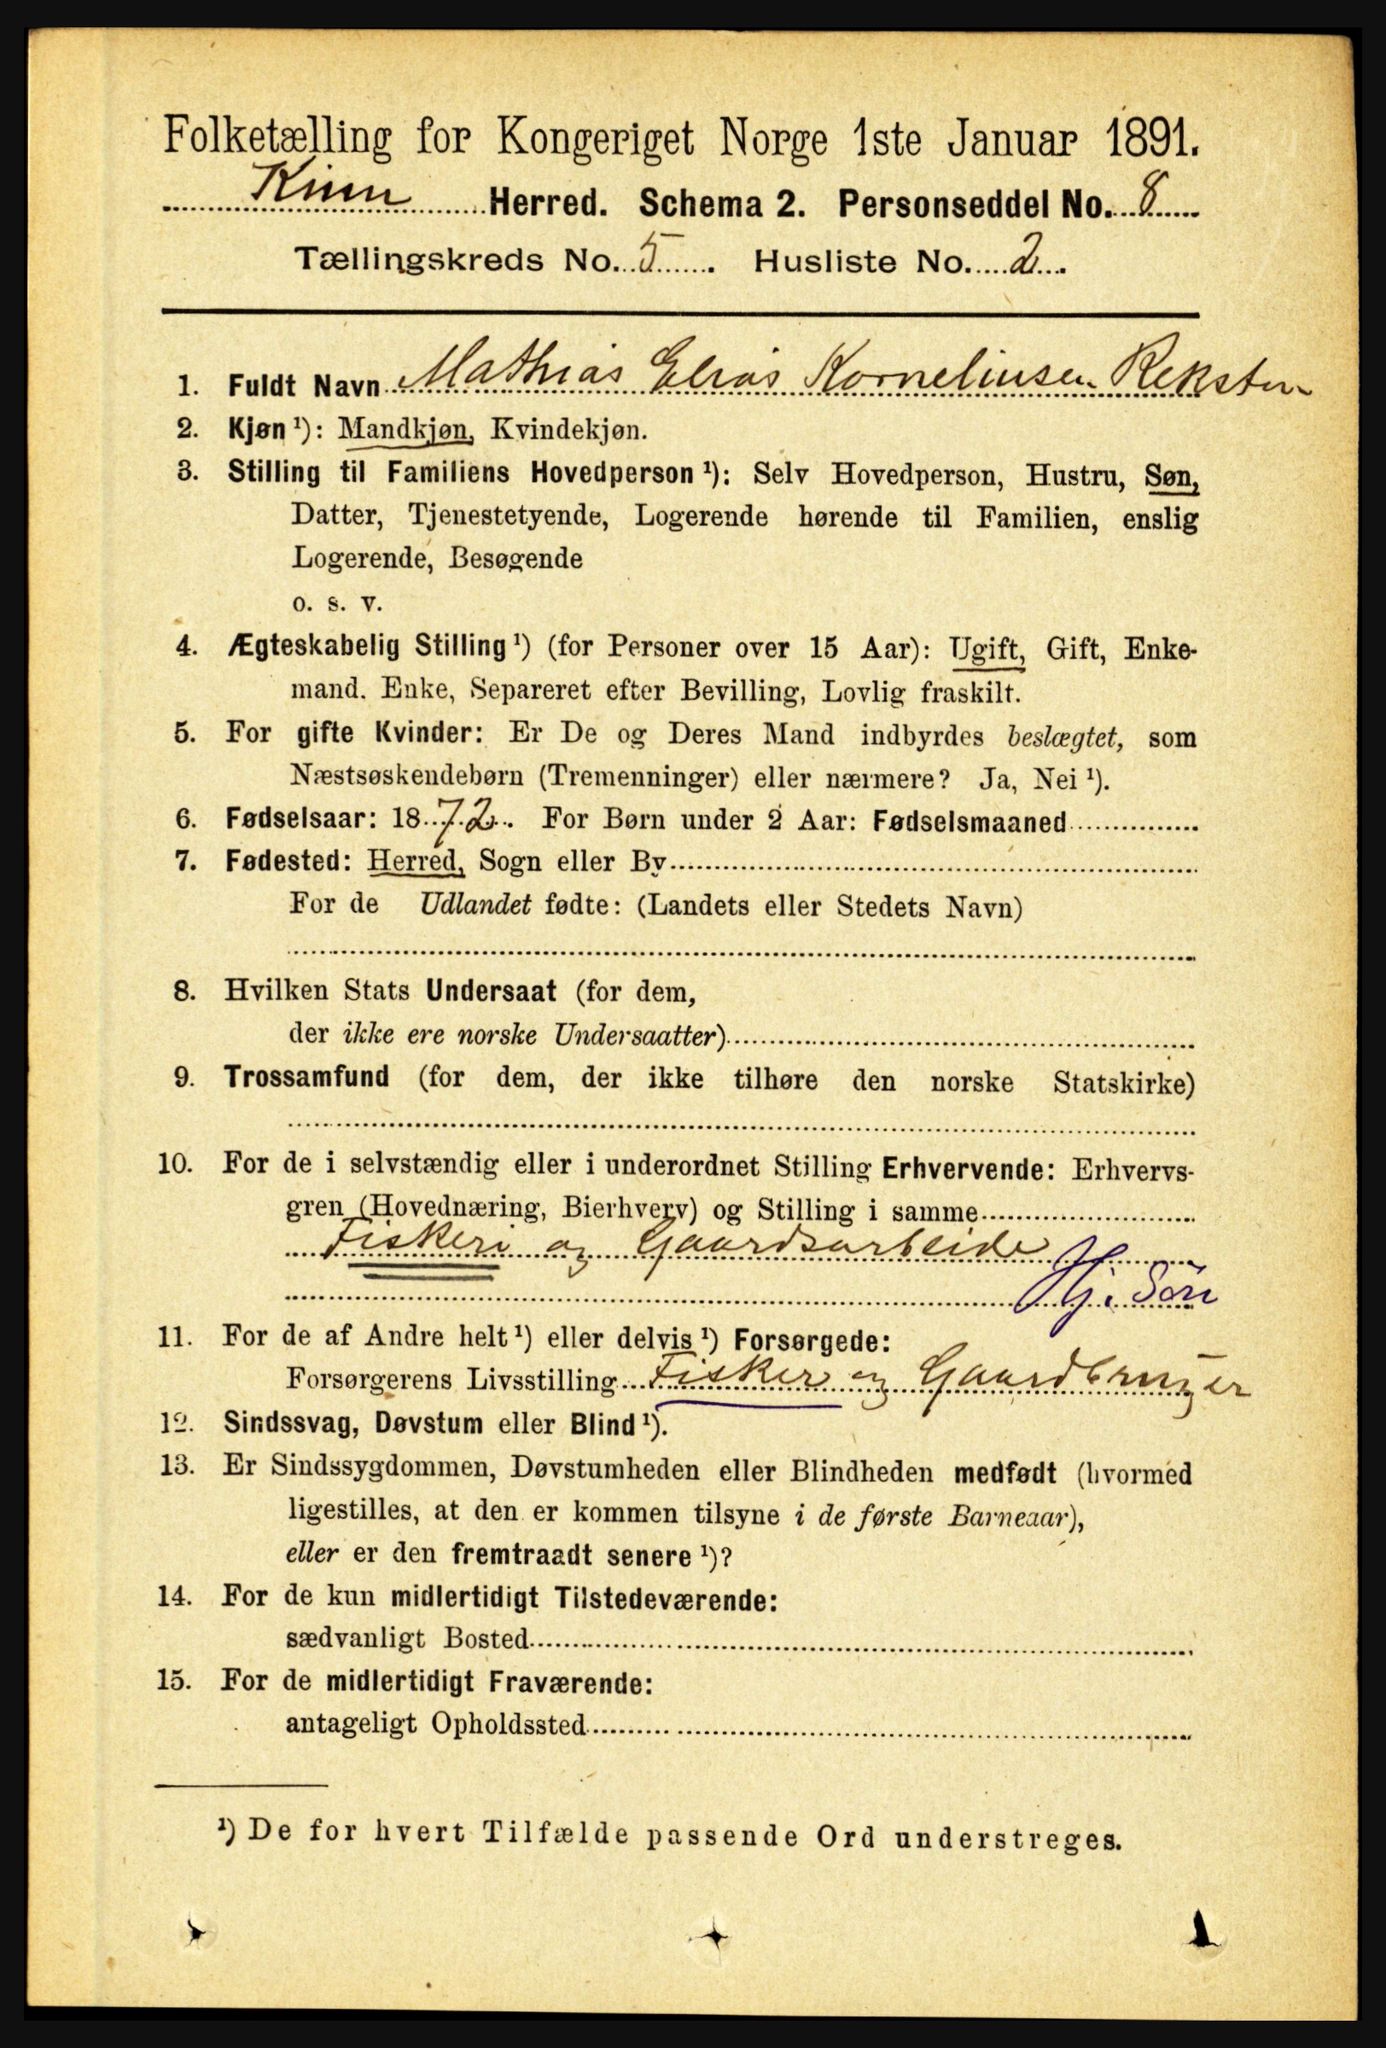 Folketælling for Kongeriget Norge 1ste Januar 1891.
Kinn Herred. Schema 2. Personseddel No. 8
Tællingskreds No. 5. Husliste No. 2.
1. Fuldt Navn Mathias Elias Kornelinsen Reksten
2. Kjøn ¹): Mandkjøn, Kvindekjøn.
3. Stilling til Familiens Hovedperson ¹): Selv Hovedperson, Hustru, Søn,
Datter, Tjenestetyende, Logerende hørende til Familien, enslig
Logerende, Besøgende
o. s. v.
4. Ægteskabelig Stilling ¹) (for Personer over 15 Aar): Ugift, Gift, Enke-
mand. Enke, Separeret efter Bevilling, Lovlig fraskilt.
5. For gifte Kvinder: Er De og Deres Mand indbyrdes beslægtet, som
Næstsøskendebørn (Tremenninger) eller nærmere? Ja, Nei ¹).
6. Fødselsaar: 1872. For Børn under 2 Aar: Fødselsmaaned
7. Fødested: Herred, Sogn eller By
For de Udlandet fødte: (Landets eller Stedets Navn)
8. Hvilken Stats Undersaat (for dem,
der ikke ere norske Undersaatter)
9. Trossamfund (for dem, der ikke tilhøre den norske Statskirke)
10. For de i selvstændig eller i underordnet Stilling Erhvervende: Erhvervs-
gren (Hovednæring, Bierhverv) og Stilling i samme
Fiskeri og Gaardsarbeide
Hj. Søn
11. For de af Andre helt ¹) eller delvis ¹) Forsørgede:
Forsørgerens Livsstilling Fisker og Gaardbruger
12. Sindssvag, Døvstum eller Blind ¹).
13. Er Sindssygdommen, Døvstumheden eller Blindheden medfødt (hvormed
ligestilles, at den er kommen tilsyne i de første Barneaar),
eller er den fremtraadt senere ¹)?
14. For de kun midlertidigt Tilstedeværende:
sædvanligt Bosted
15. For de midlertidigt Fraværende:
antageligt Opholdssted
¹) De for hvert Tilfælde passende Ord understreges.